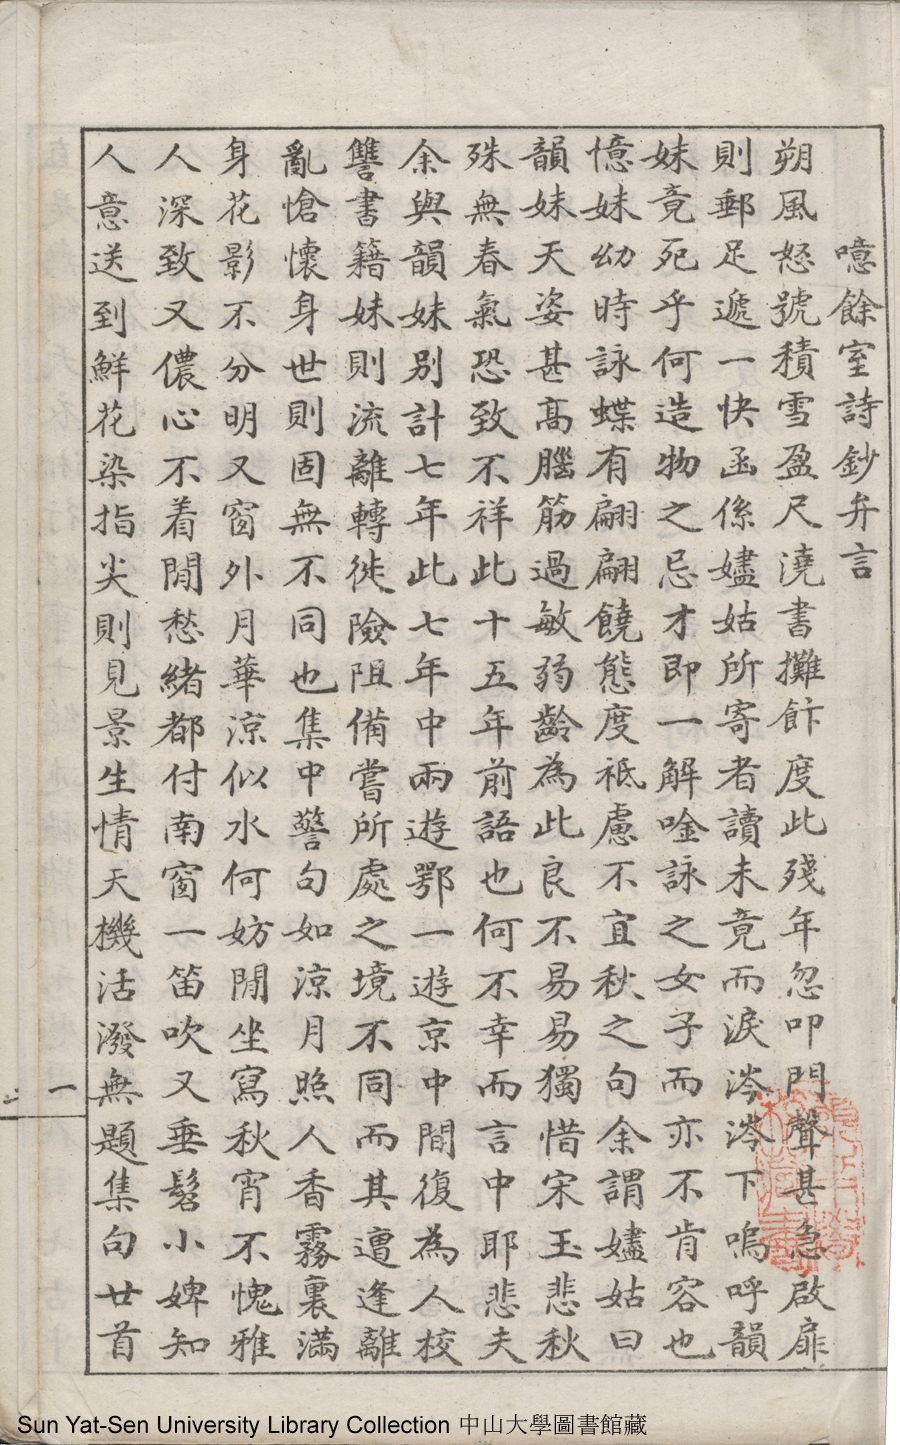 噫餘室詩鈔弁言
朔風怒號積雪盈尺澆書攤飰度此殘年忽叩門聲甚急啟扉
則郵足遞一快函係嫿姑所寄者讀未竟而淚涔涔下嗚呼韻
妹竟死乎何造物之忌才即一解唫詠之女子而亦不肯容也
憶妹幼時詠蝶有翩翩饒態度祇慮不宜秋之句余謂嫿姑曰
韻妹天姿甚高腦筋過敏弱齡為此良不易易獨惜宋玉悲秋
殊無春氣恐致不祥此十五年前語也何不幸而言中耶悲夫
余與韻妹別計七年此七年中兩遊鄂一遊京中間復為人校
讐書籍妹則流離轉徙險阻備嘗所處之境不同而其遭逢離
亂愴懷身世則固無不同也集中警句如涼月照人香霧裏滿
身花影不分明又窗外月華涼似水何妨閒坐寫秋宵不愧雅
人深致又儂心不着閒愁緒都付南窗一笛吹又垂髫小婢知
人意送到鮮花染指尖則見景生情天機活潑無題集句廿首
一
Sun Yat-Sen University Library Collection 中山大學圖書館藏